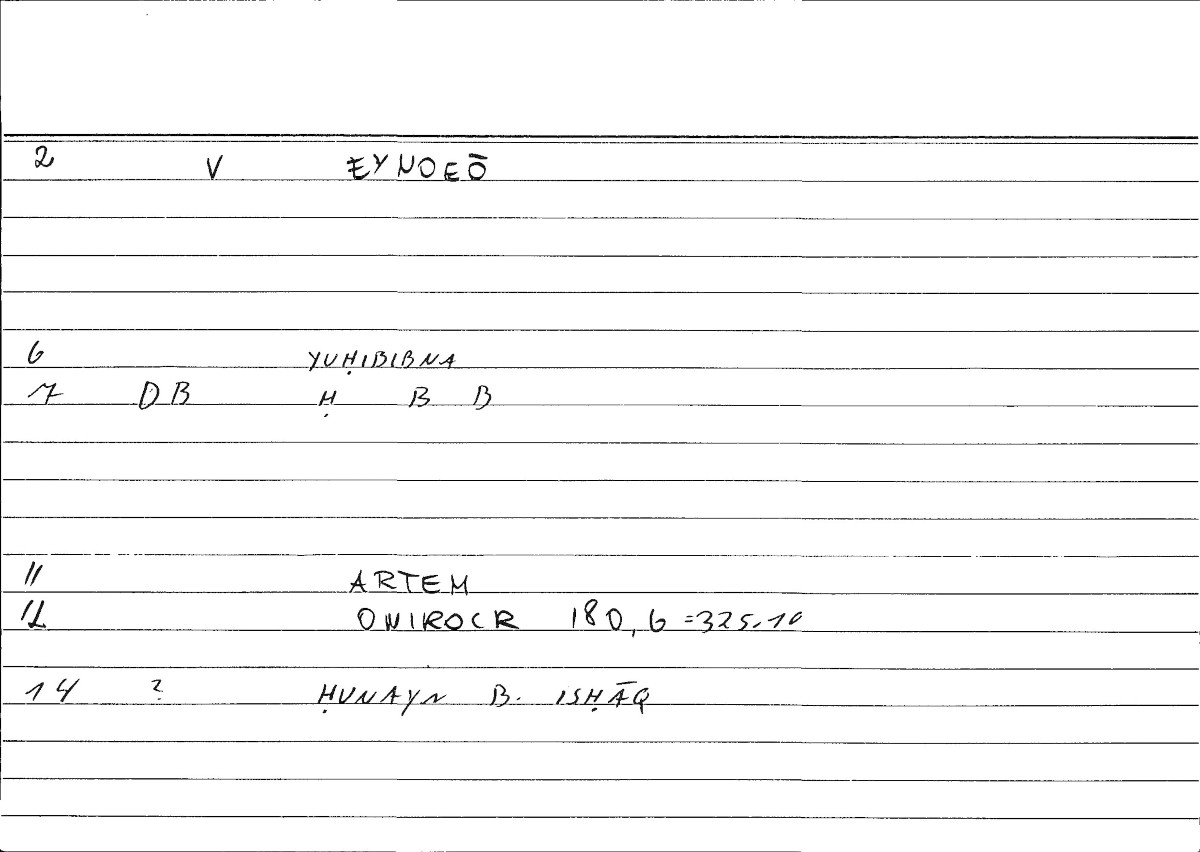 2 V EYNOEŌ
6 YUḤIBIBNA
7 DB Ḥ B B
11 ARTEM
12 ONIROCR 180,6 =325.10
14 ? ḤUNAYN B. ISḤĀQ